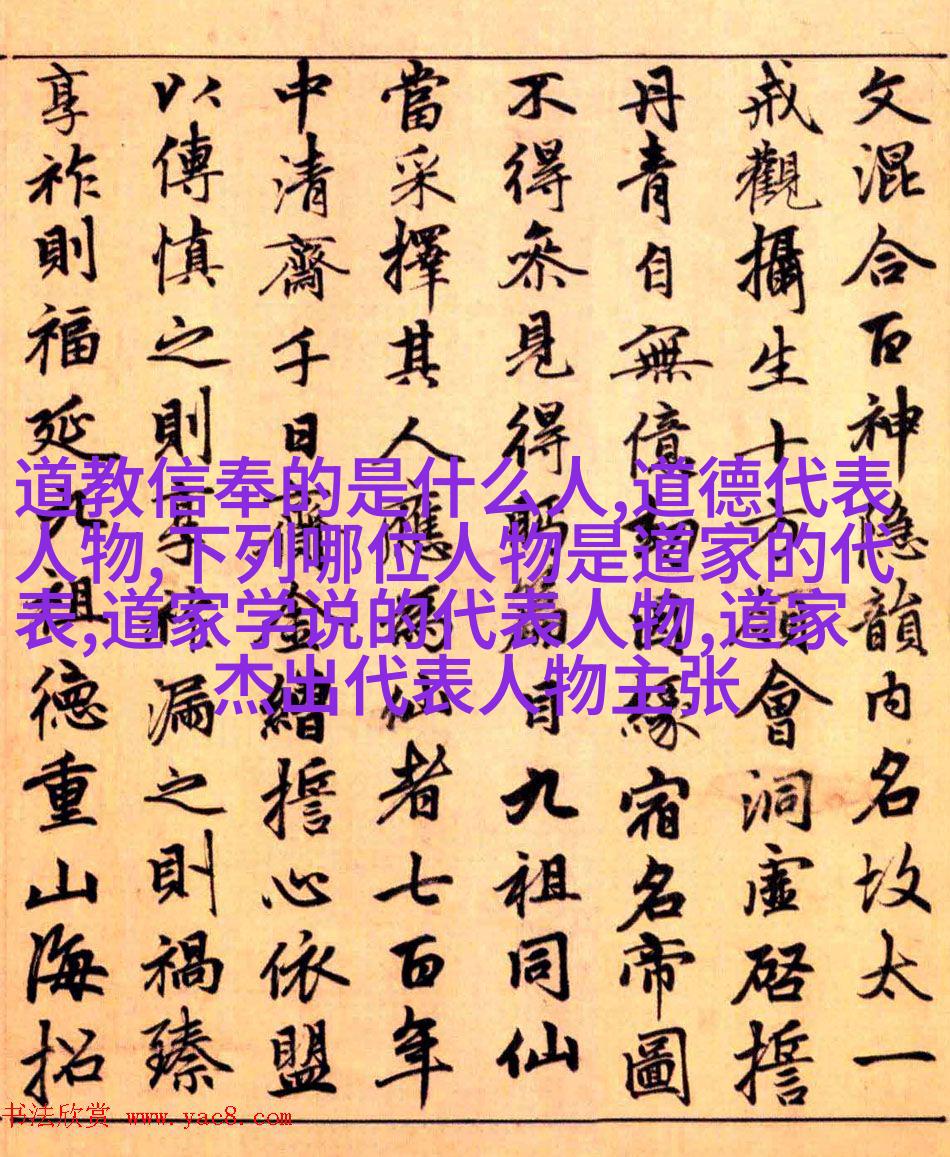 文混合百神隐韻内名故太一
戒觀攝生十方會洞虛啓誓
丹青自無億劫因緣宿名帝圖
不得叅見得眄篇目九祖同仙
當采擇其人應爲仙者七百年
中清齋千日齎金繒誓心依盟
以傳慎之則享佑漏之則禍臻
享祚則福延九祖德重山海招
道教信奉的是什么人,道德代表
人物,下列哪位人物是道家的代
表,道家学说的代表人物,道家
杰出代表人物主张
书法欣赏 www.yac8.com